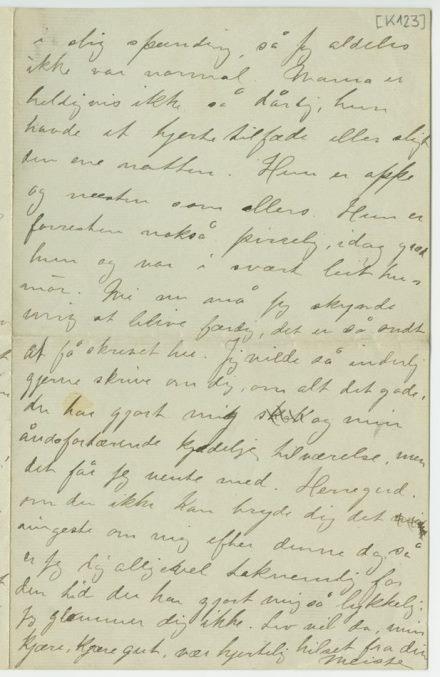 [K123]
i slig spænding, så jeg aldeles
ikke var normal. Mama er
heldigvis ikke så dårlig, hun
havde et hjertetilfæde eller sligt
den ene natten. Hun er oppe
og næsten som ellers. Hun er
forresten nokså pirrelig, idag græd
hun og var i svært leit hu-
mör. Nei nu må jeg skynde
mig at blive færdig, det er så ondt
at få skrevet her. Jeg vilde så inderlig
gjerne skrive om dig, om alt det gode,
du har gjort mig og min
åndsfortærende kjedelige tilværelse, men
det får jeg vente med. Herregud,
om du ikke kan bryde dig det
ringeste om mig efter denne dag, så
er jeg dig alligevel taknemlig for
den tid du har gjort mig så lykkelig.
Jeg glemmer dig ikke. Lev vel da, min
kjære, kjære gut, vær hjertelig hilset fra din
Meisse